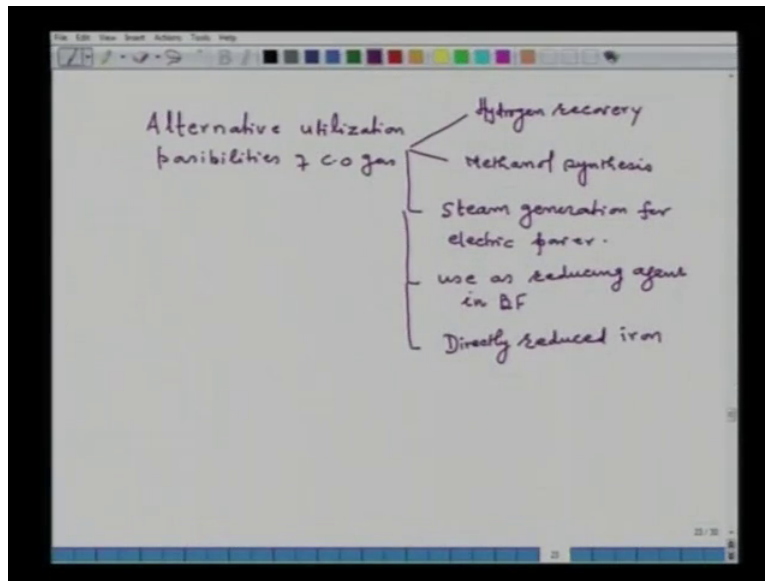 File Edit View Insert Actions Tools Help
Alternative utilization
paribilities of C.O gas
Hydrogen recovery
Methanol synthesis
Steam generation for
electric power.
use as reducing agent
in BF
Directly reduced iron
23